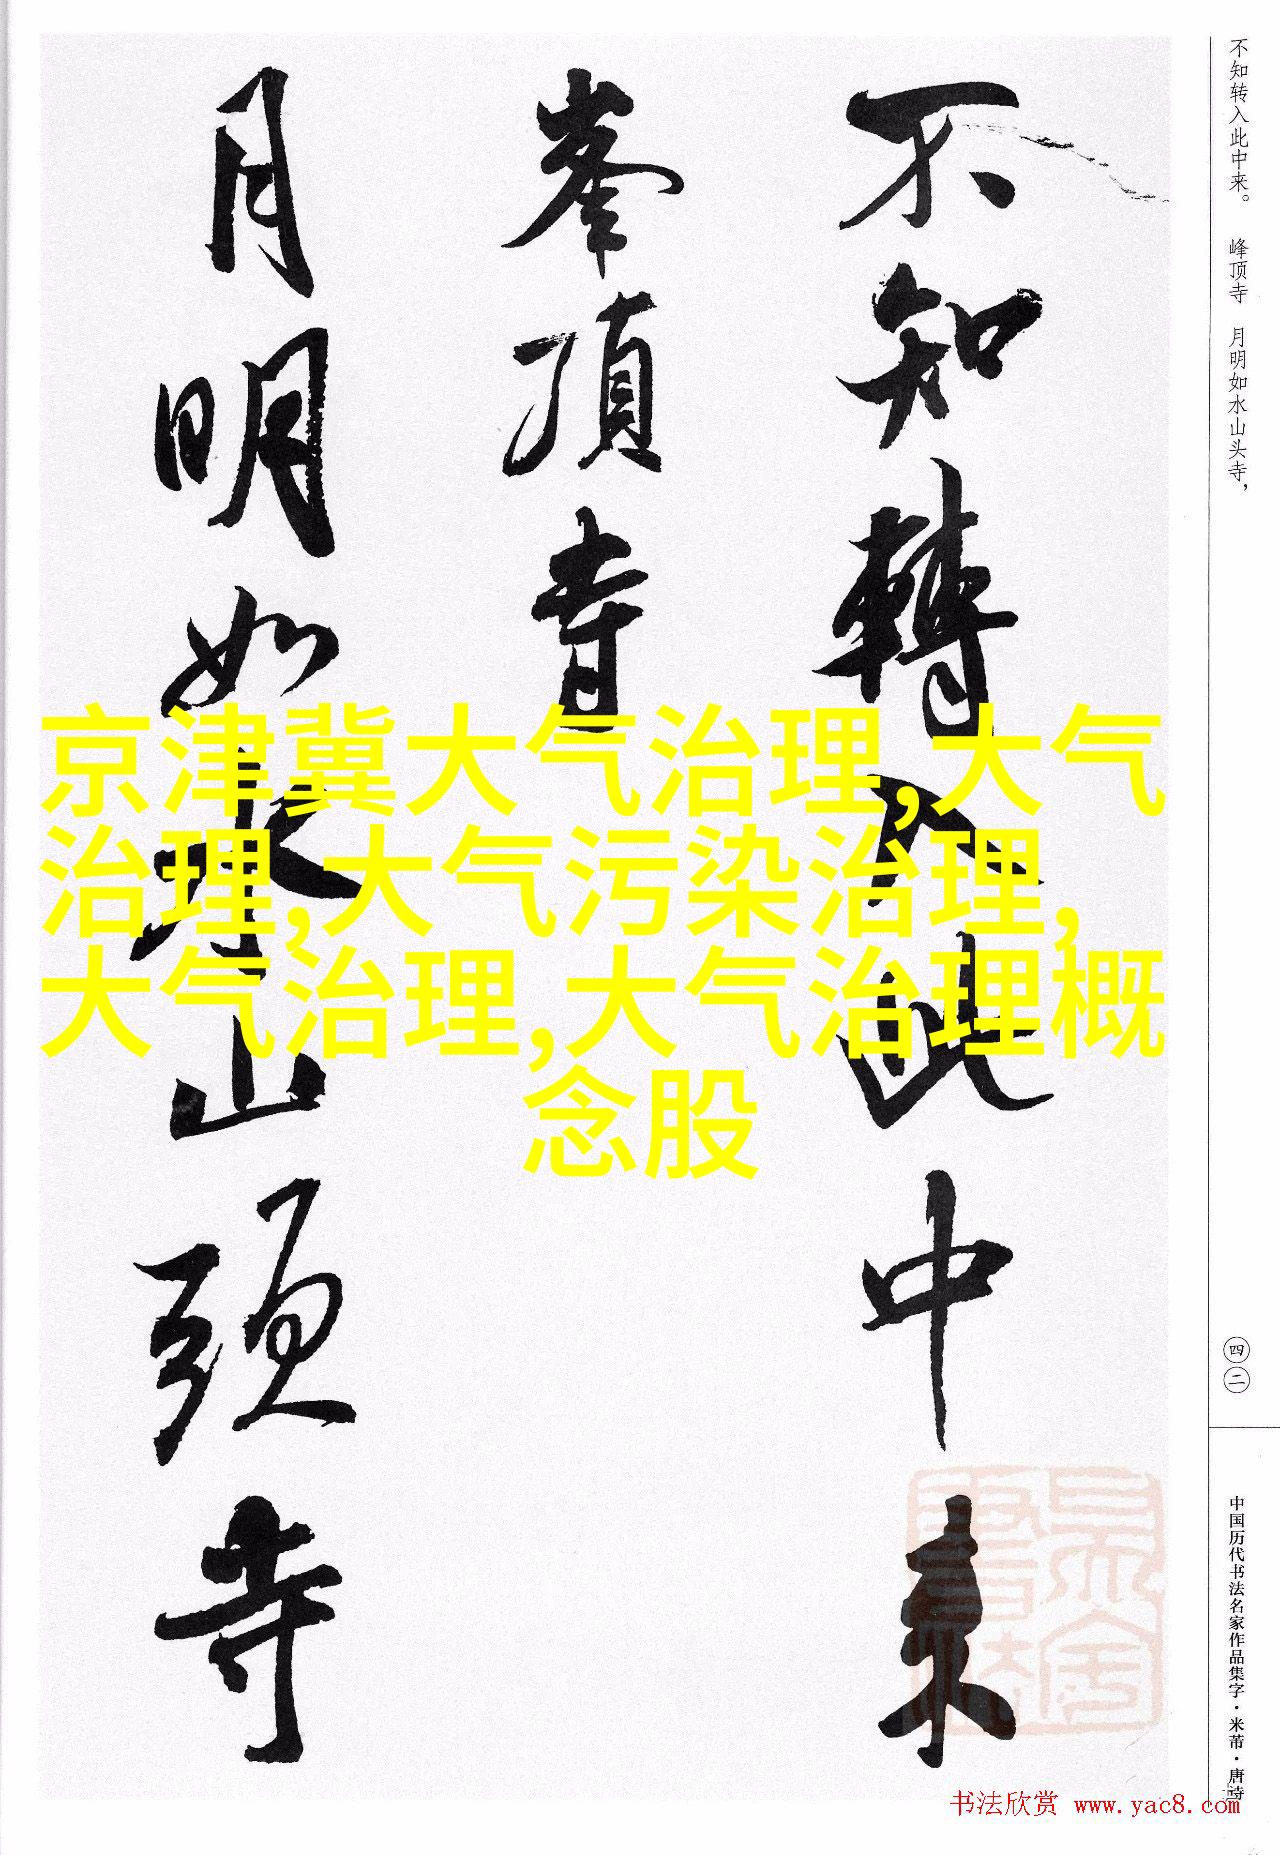 不知轉入此中来
峯頂寺
月明如水山頭寺
京津冀大气治理,大气
治理,大气污染治理,
大气治理,大气治理概
念股
不知转入此中来。 峰顶寺 月明如水山头寺，
四二
中国历代书法名家作品集字·米芾·唐诗
书法欣赏 www.yac8.com